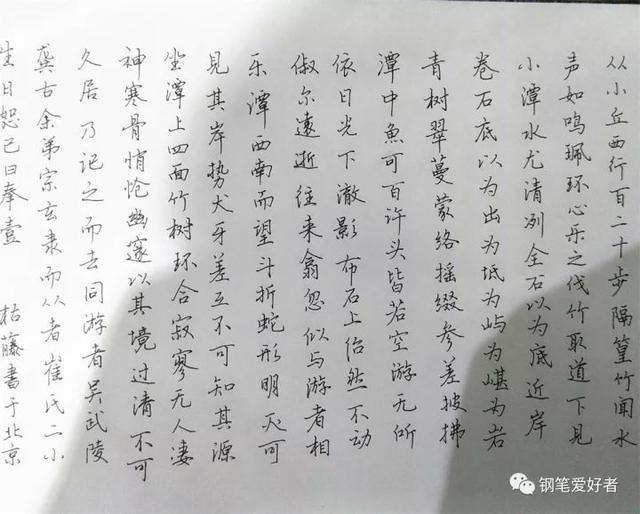 从小丘西行百二十步隔篁竹闻水
声如鸣珮环心乐之伐竹取道下见
小潭水尤清冽全石以为底近岸
卷石底以为出为坻为屿为嵁为岩
青树翠蔓蒙络摇缀参差披拂
潭中魚可百许头皆若空游无所
依日光下澈影布石上佁然不动
俶尔遠逝往来翕忽似与游者相
乐潭西南而望斗折蛇形明灭可
見其岸势犬牙差互不可知其源
坐潭上四面竹树环合寂寥无人凄
神寒骨悄怆幽邃以其境过清不可
久居乃记之而去同游者吴武陵
龚古余弟宗玄隶而从者崔氏二小
生日恕己曰奉壹 枯藤書于北京
钢笔爱好者